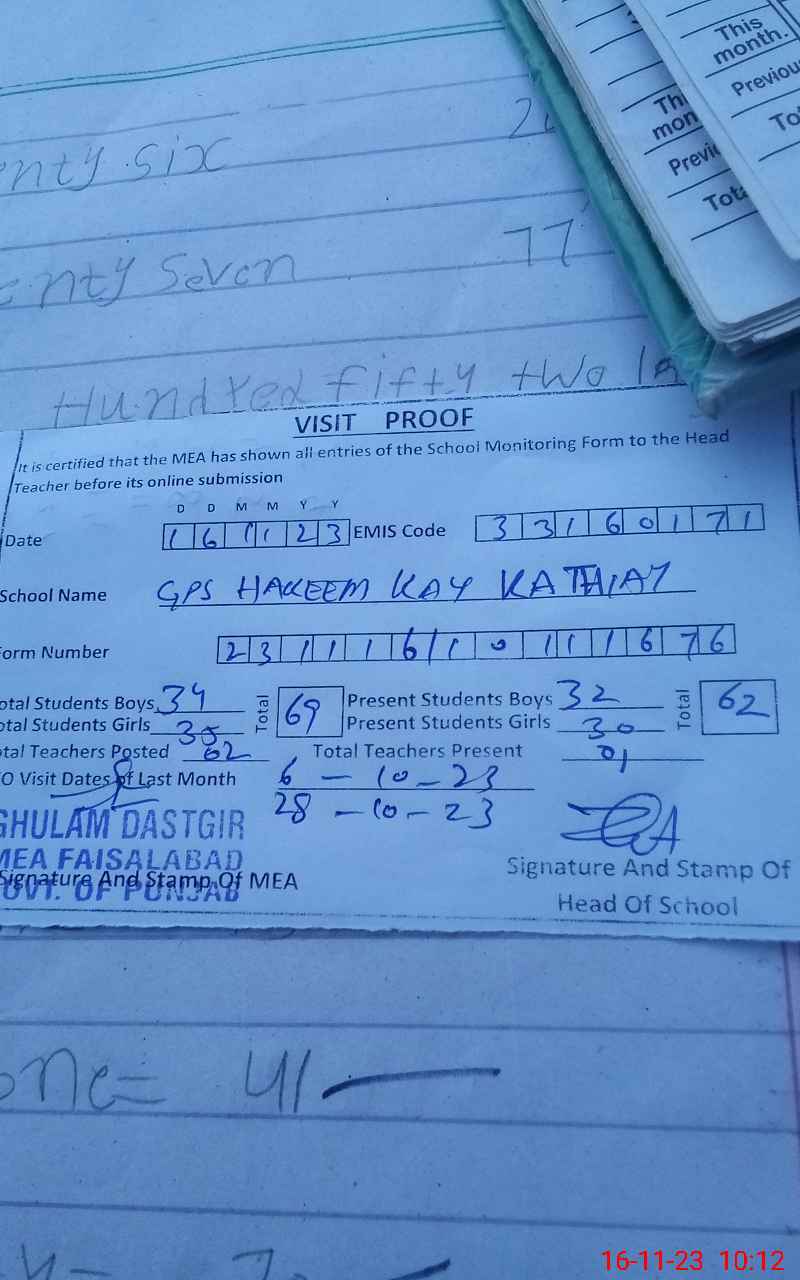 This
month.
Previou
To
Th
mon
Previ
Tot
nty six 2
enty Seven 77
Hundred fifty two
VISIT PROOF
It is certified that the MEA has shown all entries of the School Monitoring Form to the Head
Teacher before its online submission
D D M M Y Y
Date 1 6 1 1 2 3 EMIS Code 3 3 1 6 0 1 7 1
School Name GPS HAKEEM KAY KATHIAY
Form Number 2 3 1 1 1 6 1 0 1 1 1 6 7 6
otal Students Boys 34 Total 69 Present Students Boys 32 Total 62
otal Students Girls 35 Present Students Girls 30
tal Teachers Posted 02 Total Teachers Present 01
O Visit Dates of Last Month 6 - 10 - 23
28 - 10 - 23
GHULAM DASTGIR
MEA FAISALABAD
GOVT. OF PUNJAB
Signature And Stamp Of MEA
Signature And Stamp Of
Head Of School
one = 41
16-11-23 10:12